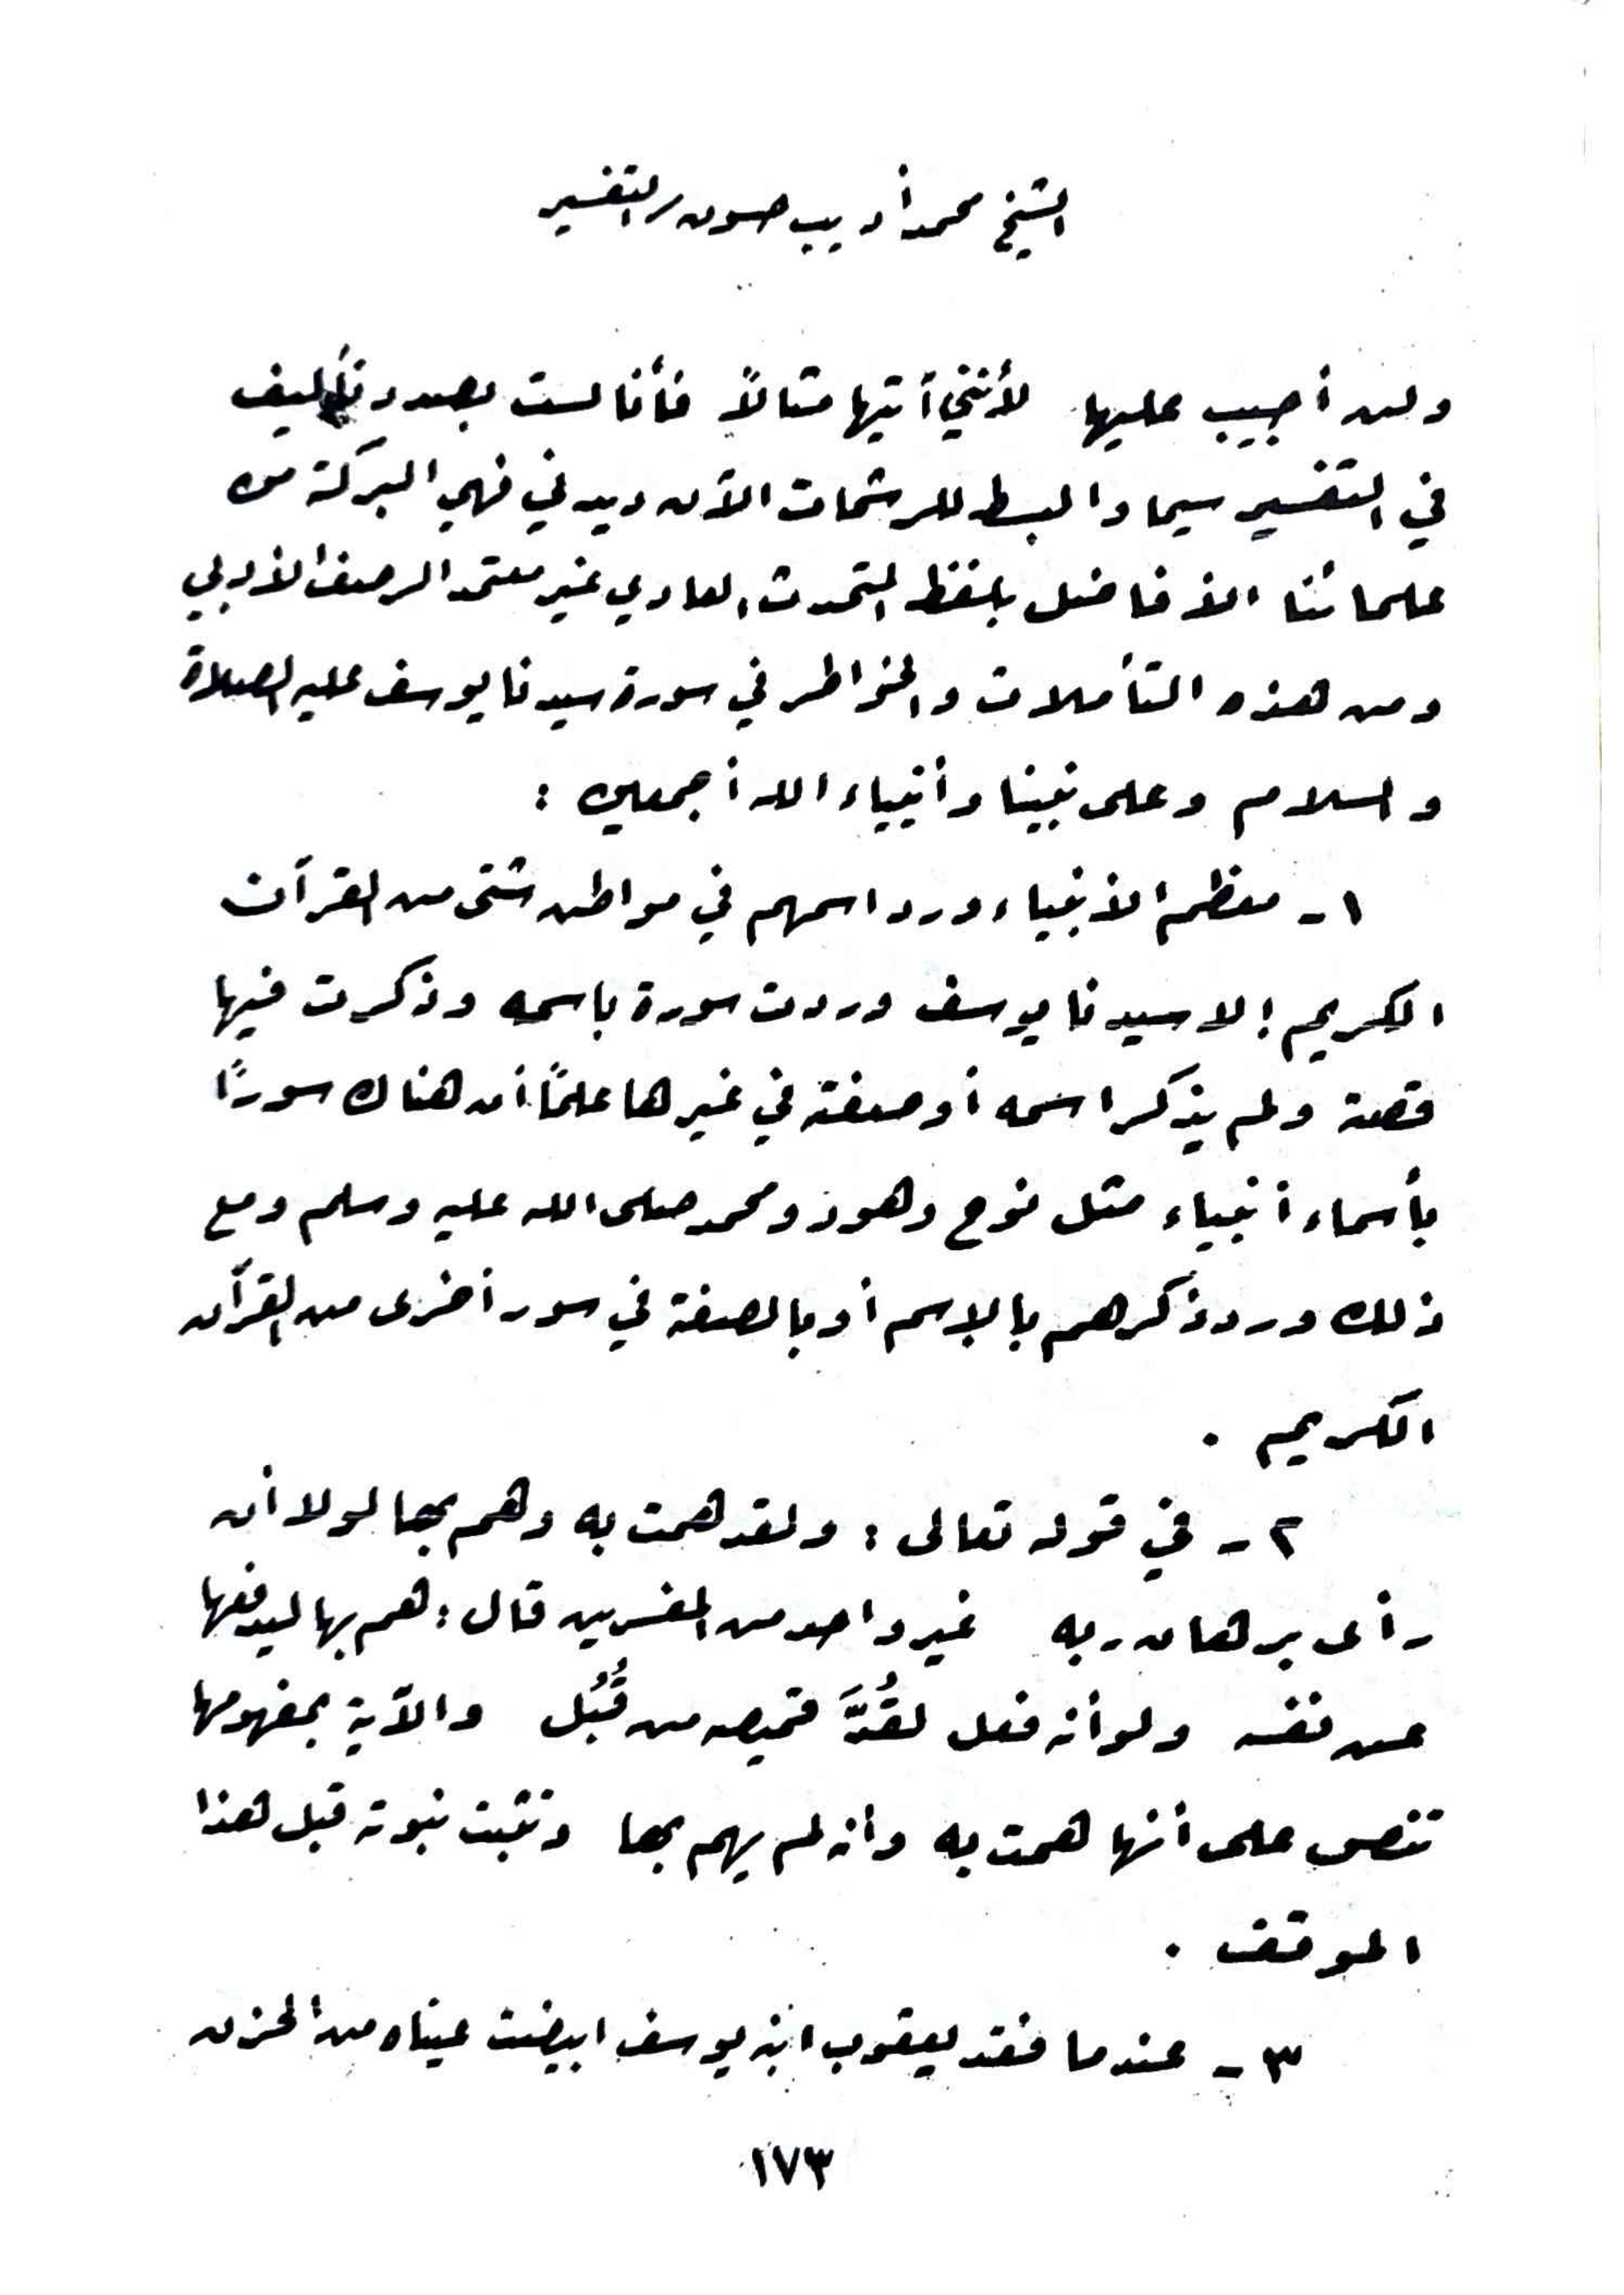 الشيخ محمد أديب حسون/التفسير
ولن أجيب عليها لأنني أتيتها مثالاً فأنا لست بصدد تأليف
في التفسير سيما والبسط للرشحات الآن ديدني فهي البركة من
علمائنا الأفاضل بلفظ المتحدث العادي غير معتمد الرصف الأدبي
ومن هذه التأملات والخواطر في سورة سيدنا يوسف عليه الصلاة
والسلام وعلى نبينا وأنبياء الله أجمعين :
١- معظم الأنبياء ورد اسمهم في مواطن شتى من القرآن
الكريم إلا سيدنا يوسف وردت سورة باسمه وذكرت فيها
قصته ولم يذكر اسمه أو صفته في غيرها علمًا أن هناك سورًا
بأسماء أنبياء مثل نوح وهود ومحمد صلى الله عليه وسلم ومع
ذلك ورد ذكرهم بالاسم أو بالصفة في سور أخرى من القرآن
الكريم .
٢- في قوله تعالى : ولقد همت به وهم بها لولا أن
رأى برهان ربه غير واحد من المفسرين قال : هم بها ليدفعها
عن نفسه ولو أنه فعل لقُدَّ قميصه من قُبُل والآية بمفهومها
تنص على أنها همت به وأنه لم يهم بها وتثبت نبوته قبل هذا
الموقف .
٣- عندما فقد يعقوب ابنه يوسف ابيضت عيناه من الحزن
١٧٣